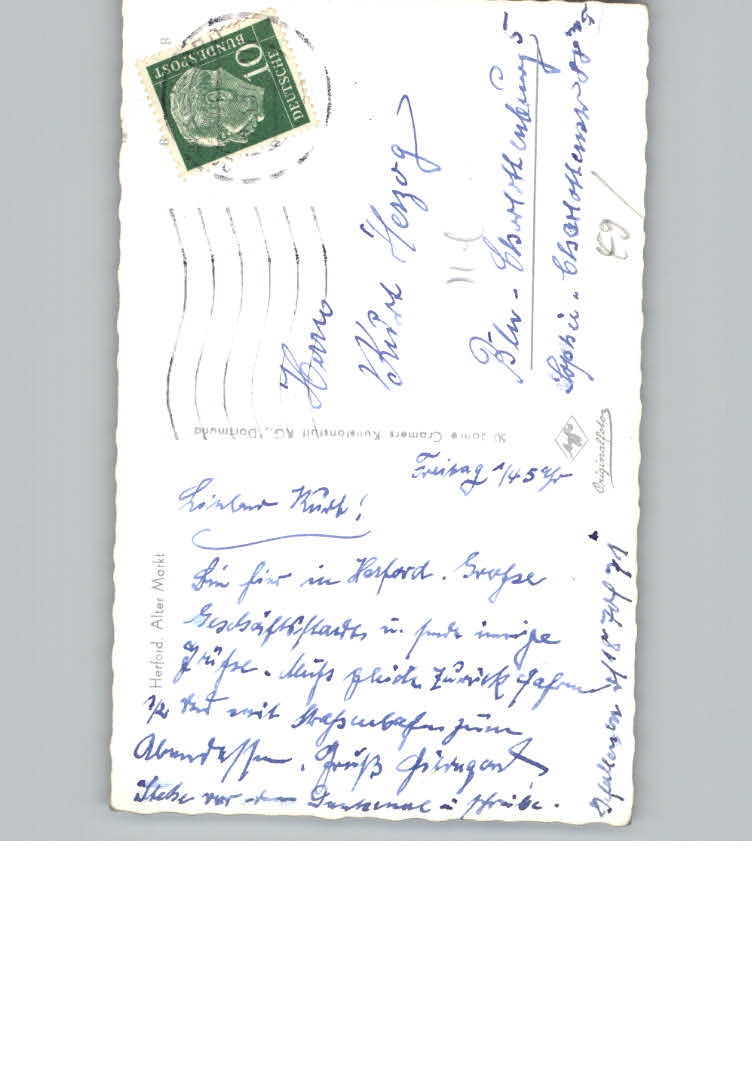 DEUTSCHE
BUNDESPOST
10
Herrn
Kurt Herzog
Bln - Charlottenburg 5
Sophie - Charlottenstr 88
50 Jahre Cramers Kunstanstalt KG., Dortmund
Agfa
Originalfoto
Herford. Alter Markt
Freitag 1/4 5 Uhr
Lieber Kurt!
Bin hier in Herford. Große
Geschäftsstadt u. sende innige
Grüße. Muß gleich zurück fahren
mit Straßenbahn zum
Abendessen. Gruß
Stehe vor dem Denkmal u schreibe.
18 70/71